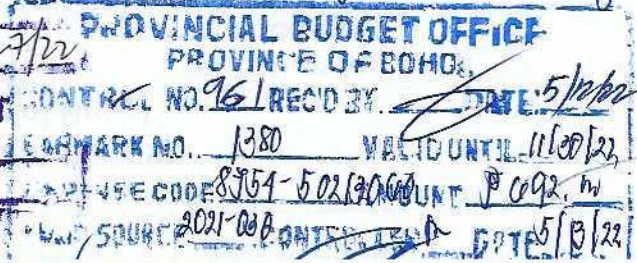 7/22
PROVINCIAL BUDGET OFFICE
PROVINCE OF BOHOL
CONTROL NO. 961 REC'D BY. DATE: 5/12/22
EARMARK NO. 1380 VALID UNTIL 11/30/22
EXPENSE CODE AMOUNT ₱ 692.
FUND SOURCE 2021- DATE 5/13/22